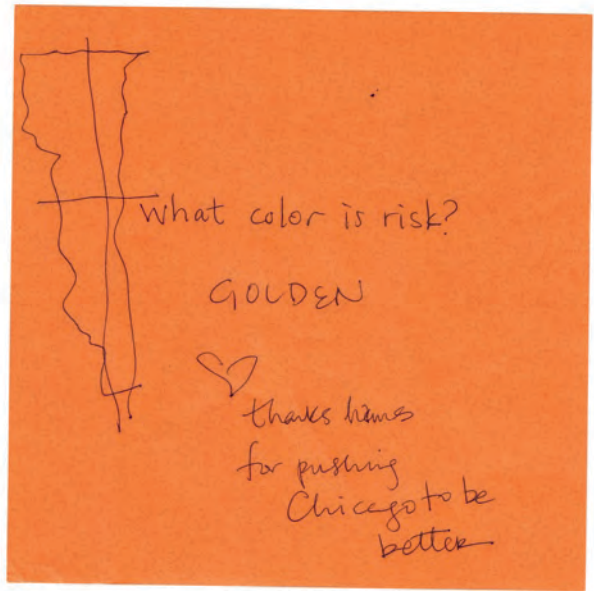 What color is risk?
GOLDEN
thanks
for pushing
Chicago to be
better